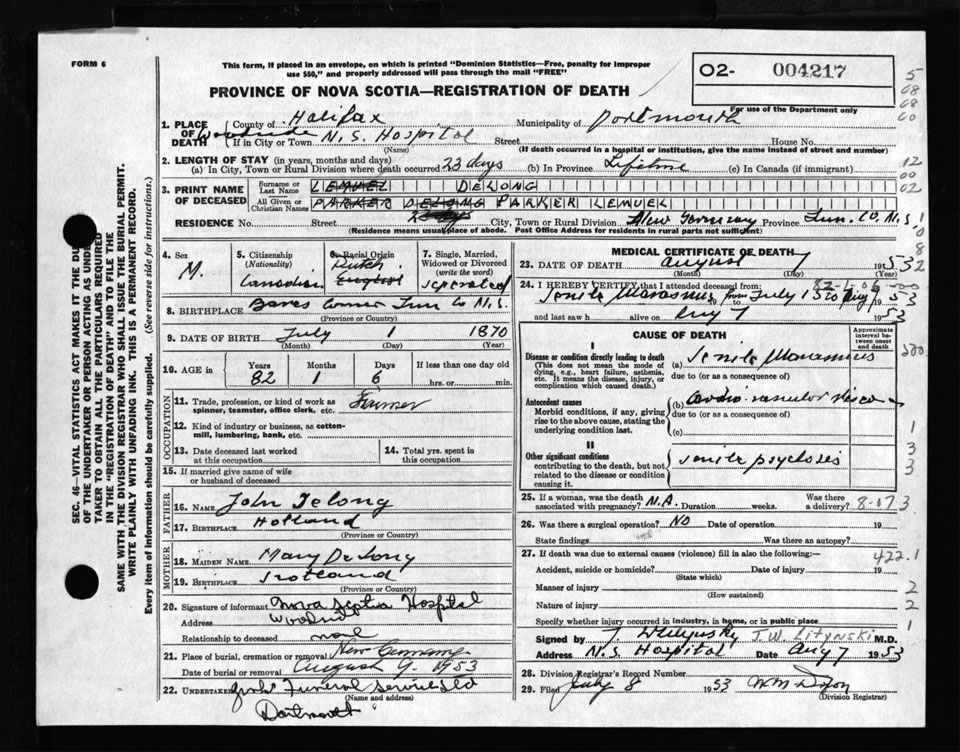 FORM 6
This form, if placed in an envelope, on which is printed "Dominion Statistics—Free, penalty for improper
use $50," and properly addressed will pass through the mail "FREE"
O2- 004217
PROVINCE OF NOVA SCOTIA—REGISTRATION OF DEATH
For use of the Department only
1. PLACE OF DEATH
County of Halifax Municipality of Dartmouth
Woodside If in City or Town N.S. Hospital Street House No.
(Name) (If death occurred in a hospital or institution, give the name instead of street and number)
2. LENGTH OF STAY (in years, months and days)
(a) In City, Town or Rural Division where death occurred 23 days (b) In Province Lifetime (c) In Canada (if immigrant)
3. PRINT NAME OF DECEASED
Surname or Last Name LEMUEL DELONG
All Given or Christian Names PARKER DELONG PARKER LEMUEL
RESIDENCE No. Street 23 days City, Town or Rural Division New Germany Province Lun. Co. N.S.
(Residence means usual place of abode. Post Office Address for residents in rural parts not sufficient)
4. Sex M.
5. Citizenship (Nationality) Canadian
6. Racial Origin Dutch English
7. Single, Married, Widowed or Divorced (write the word) separated
8. BIRTHPLACE Corner Lun Co N.S.
(Province or Country)
9. DATE OF BIRTH July 1 1870
(Month) (Day) (Year)
10. AGE in Years 82 Months 1 Days 6 If less than one day old hrs. or min.
OCCUPATION
11. Trade, profession, or kind of work as spinner, teamster, office clerk, etc. Farmer
12. Kind of industry or business, as cotten-mill, lumbering, bank, etc.
13. Date deceased last worked at this occupation
14. Total yrs. spent in this occupation
15. If married give name of wife or husband of deceased
FATHER
16. NAME John Delong
17. BIRTHPLACE Holland
(Province or Country)
MOTHER
18. MAIDEN NAME Mary Delong
19. BIRTHPLACE Scotland
(Province or Country)
20. Signature of informant Nova Scotia Hospital
Address Woodside
Relationship to deceased none
21. Place of burial, cremation or removal New Germany
Date of burial or removal August 9, 1953
22. UNDERTAKER Funeral Service Ltd
(Name and address)
Dartmouth
MEDICAL CERTIFICATE OF DEATH
23. DATE OF DEATH August 7 1953
(Month) (Day) (Year)
82-1-06
24. I HEREBY CERTIFY that I attended deceased from:
Senile Marasmus from July 15 to Aug 7 1953
and last saw h alive on Aug 7 1953
CAUSE OF DEATH
Approximate interval between onset and death
I
Disease or condition directly leading to death
(This does not mean the mode of dying, e.g., heart failure, asthenia, etc. It means the disease, injury, or complication which caused death.)
(a) Senile Marasmus
due to (or as a consequence of)
Antecedent causes
Morbid conditions, if any, giving rise to the above cause, stating the underlying condition last.
(b) Cardio-vascular disease
due to (or as a consequence of)
(c)
II
Other significant conditions
contributing to the death, but not related to the disease or condition causing it.
senile psychosis
25. If a woman, was the death associated with pregnancy? N.A. Duration weeks. Was there a delivery?
8-073
26. Was there a surgical operation? NO Date of operation 19
State findings Was there an autopsy?
27. If death was due to external causes (violence) fill in also the following: 422.1
Accident, suicide or homicide? Date of injury 19
(State which)
Manner of injury
(How sustained)
Nature of injury
Specify whether injury occurred in industry, in home, or in public place
Signed by T. W. Litynski M.D.
Address N.S. Hospital Date Aug 7 1953
28. Division Registrar's Record Number
29. Filed July 8 1953 W M
(Division Registrar)
SEC. 46—VITAL STATISTICS ACT MAKES IT THE DU
OF THE UNDERTAKER OR PERSON ACTING AS UNDE
TAKER TO OBTAIN ALL THE PARTICULARS REQUIRED
IN THE "REGISTRATION OF DEATH" AND TO FILE THE
SAME WITH THE DIVISION REGISTRAR WHO SHALL ISSUE THE BURIAL PERMIT.
WRITE PLAINLY WITH UNFADING INK. THIS IS A PERMANENT RECORD.
Every item of information should be carefully supplied. (See reverse side for instructions.)